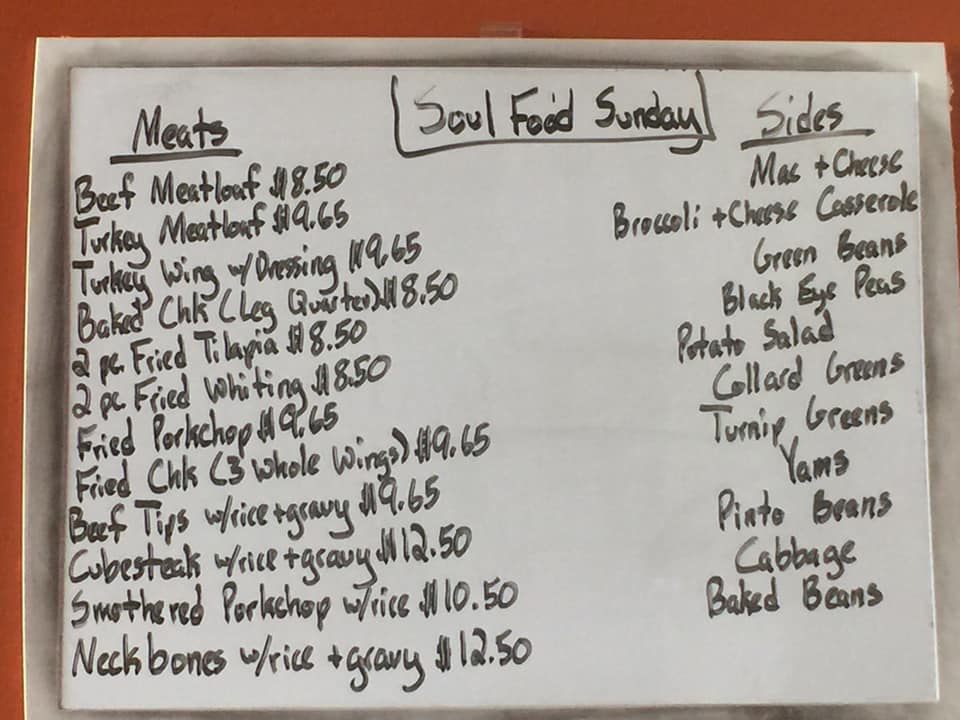 Soul Food Sunday
Meats
Beef Meatloaf $8.50
Turkey Meatloaf $9.65
Turkey Wing w/Dressing $9.65
Baked Chk (Leg Quarter) $8.50
2 pc. Fried Tilapia $8.50
2 pc. Fried Whiting $8.50
Fried Porkchop $9.65
Fried Chk (3 Whole Wings) $9.65
Beef Tips w/rice + gravy $9.65
Cubesteak w/rice + gravy $12.50
Smothered Porkchop w/rice $10.50
Neckbones w/rice + gravy $12.50
Sides
Mac + Cheese
Broccoli + Cheese Casserole
Green Beans
Black Eye Peas
Potato Salad
Collard Greens
Turnip Greens
Yams
Pinto Beans
Cabbage
Baked Beans